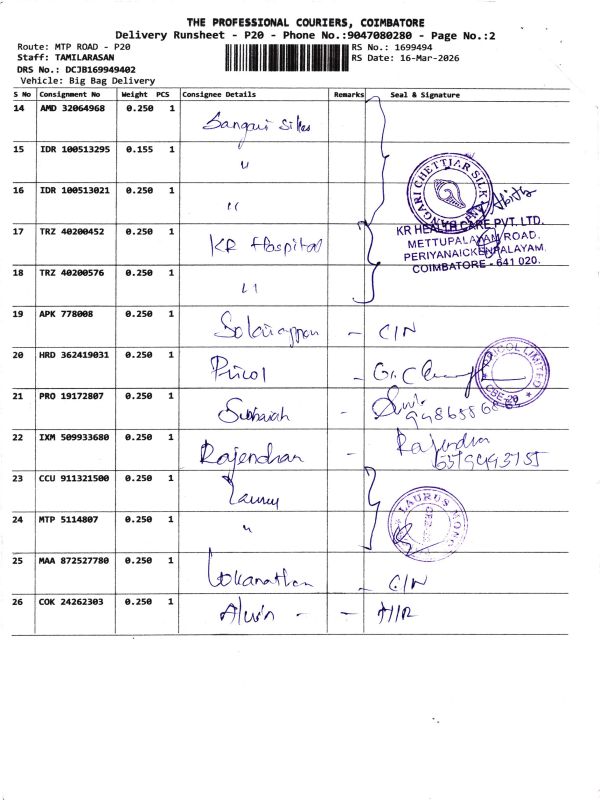 THE PROFESSIONAL COURIERS, COIMBATORE
Delivery Runsheet - P20 - Phone No.:9047080280 - Page No.:2
Route: MTP ROAD - P20 RS No.: 1699494
Staff: TAMILARASAN RS Date: 16-Mar-2026
DRS No.: DCJB169949402
Vehicle: Big Bag Delivery
S No Consignment No Weight PCS Consignee Details Remarks Seal & Signature
14 AMD 32064968 0.250 1
15 IDR 100513295 0.155 1 "
16 IDR 100513021 0.250 1 "
17 TRZ 40200452 0.250 1 KR Hospital
KR HEALTH CARE PVT. LTD.
METTUPALAYAM ROAD,
PERIYANAICKENPALAYAM,
COIMBATORE - 641 020.
18 TRZ 40200576 0.250 1 "
19 APK 778008 0.250 1 - C/N
20 HRD 362419031 0.250 1 Pricol -
PRICOL LIMITED
CBE-20
21 PRO 19172807 0.250 1 Subbaiah -
22 IXM 509933680 0.250 1 Rajendran - Rajendran
23 CCU 911321500 0.250 1
LAURUS MONO
24 MTP 5114807 0.250 1 "
25 MAA 872527780 0.250 1 Lokanathan - C/N
26 COK 24262303 0.250 1 Alwin - -